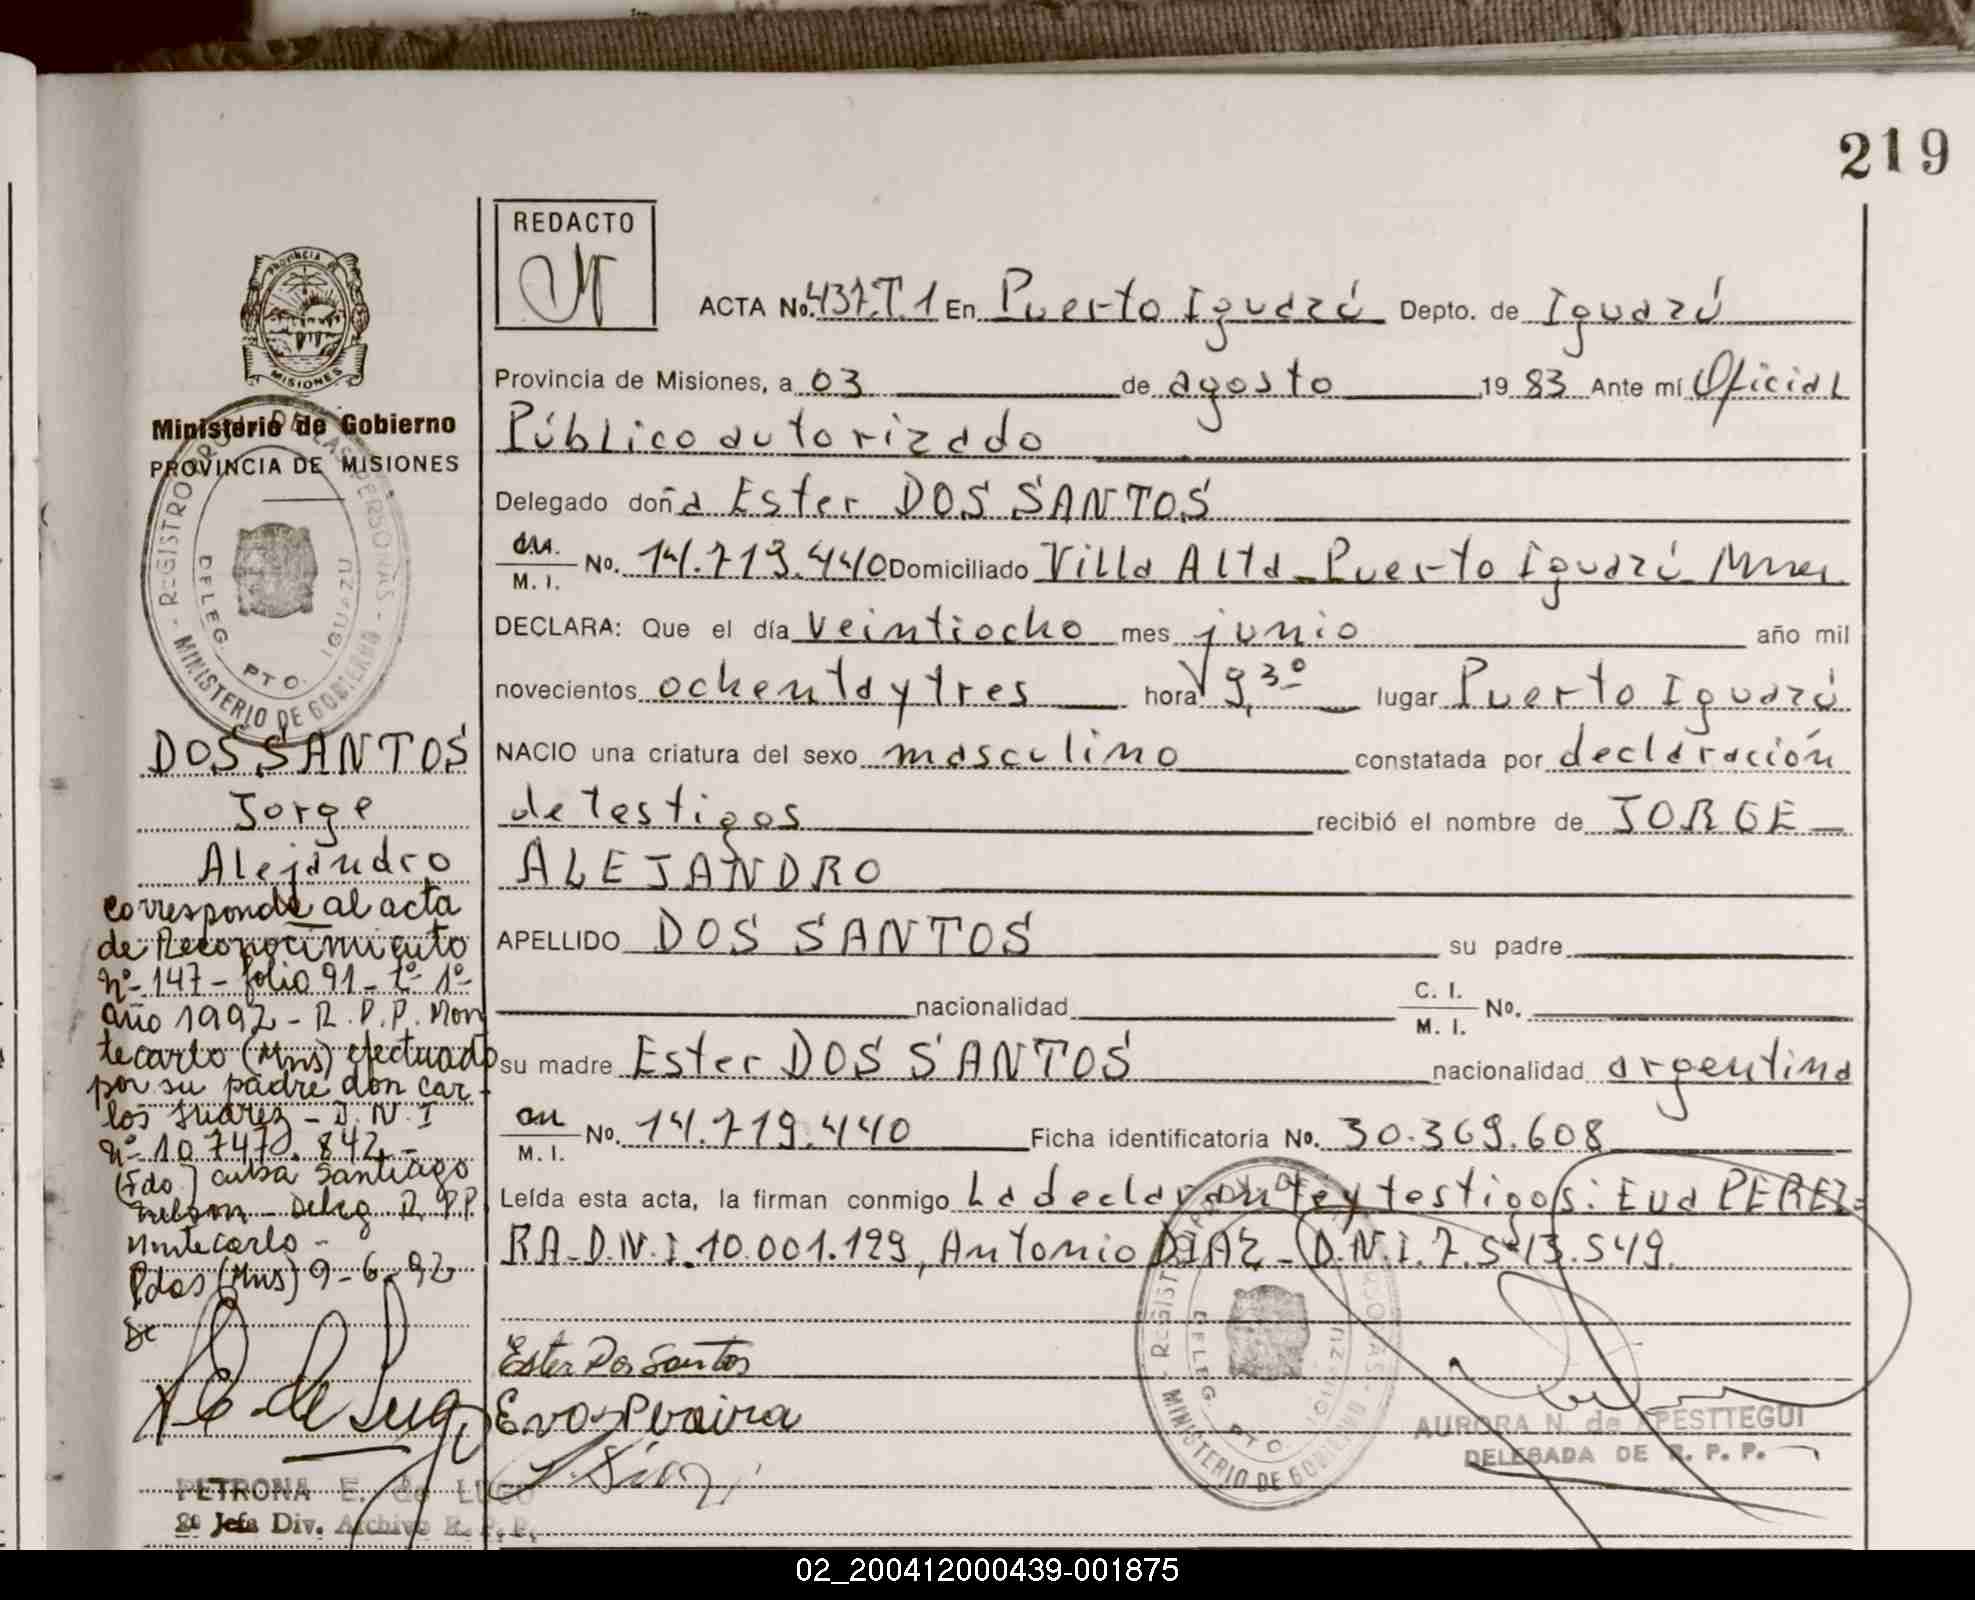 219
REDACTO
ACTA No. 437.T.1 En Puerto Iguazú Depto. de Iguazú
Provincia de Misiones, a 03 de agosto 1983 Ante mí Oficial
Público autorizado
Delegado doña Ester DOS SANTOS
M. I. No. 14.719.440 Domiciliado Villa Alta - Puerto Iguazú
DECLARA: Que el día veintiocho mes junio año mil
novecientos ochenta y tres hora 9,30 lugar Puerto Iguazú
NACIO una criatura del sexo masculino constatada por declaración
de testigos recibió el nombre de JORGE
ALEJANDRO
APELLIDO DOS SANTOS su padre
nacionalidad C. I. M. I. No.
su madre Ester DOS SANTOS nacionalidad argentina
M. I. No. 14.719.440 Ficha identificatoria No. 30.369.608
Leída esta acta, la firman conmigo La declarante y testigos: Eva PEREI=
RA-D.N.I. 10.001.129, Antonio DIAZ - D.N.I. 7.513.549.
Ester Dos Santos
Eva Peraira
A. Díaz
AURORA N. de APESTTEGUI
DELEGADA DE R. P. P.
REGISTRO PROV. DE LAS PERSONAS - MINISTERIO DE GOBIERNO -
DELEG. PTO. IGUAZU
PROVINCIA
MISIONES
Ministerio de Gobierno
PROVINCIA DE MISIONES
REGISTRO PROV. DE LAS PERSONAS - MINISTERIO DE GOBIERNO -
DELEG. PTO. IGUAZU
DOS SANTOS
Jorge
Alejandro
corresponde al acta
de Reconocimiento
nº 147 - folio 91 - tº 1º
año 1992 - R.P.P. Mon
tecarlo (Mns) efectuado
por su padre don Car-
los Suárez - D.N.I
nº 10.747.842 -
(Fdo.) Cuba Santiago
Nelson - Deleg R.P.P.
Montecarlo -
Pdas (Mns) 9-6-92
PETRONA E. de LUGO
2º Jefa Div. Archivo R. P. P.
02_200412000439-001875